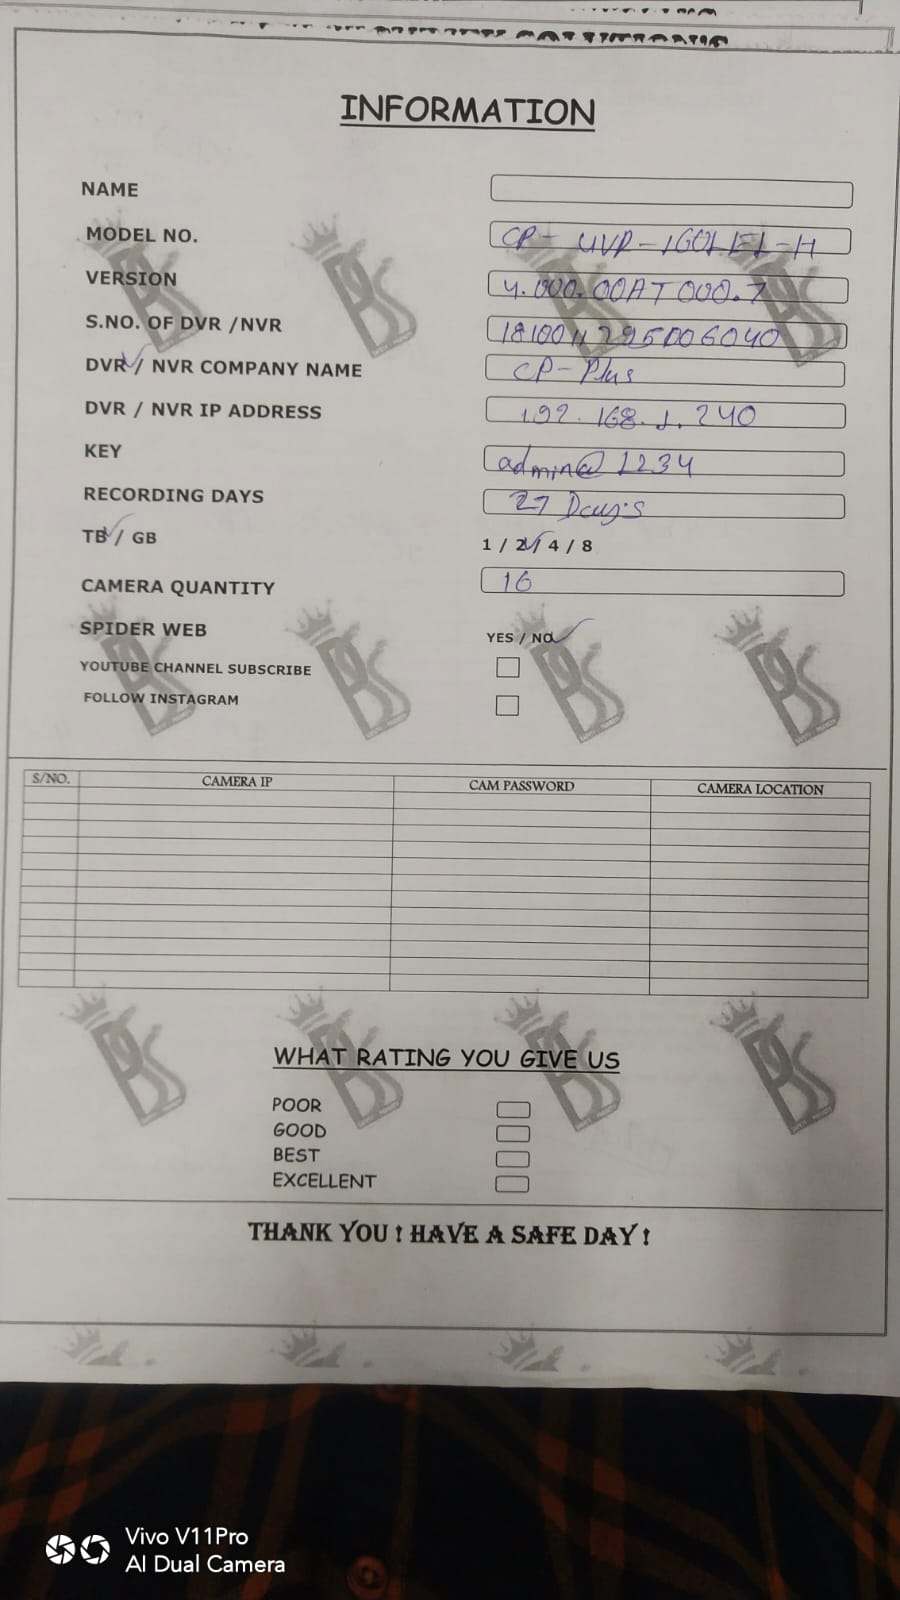 INFORMATION
NAME
MODEL NO. CP- UVR-1601E1-H
VERSION 4.000.00AT000.7
S.NO. OF DVR /NVR
DVR / NVR COMPANY NAME CP-Plus
DVR / NVR IP ADDRESS 192.168.1.240
KEY admin@1234
RECORDING DAYS 27 Day's
TB / GB 1 / 2 / 4 / 8
CAMERA QUANTITY 16
SPIDER WEB YES / NO
YOUTUBE CHANNEL SUBSCRIBE
FOLLOW INSTAGRAM
S/NO. CAMERA IP CAM PASSWORD CAMERA LOCATION
WHAT RATING YOU GIVE US
POOR
GOOD
BEST
EXCELLENT
THANK YOU ! HAVE A SAFE DAY !
Vivo V11Pro
AI Dual Camera